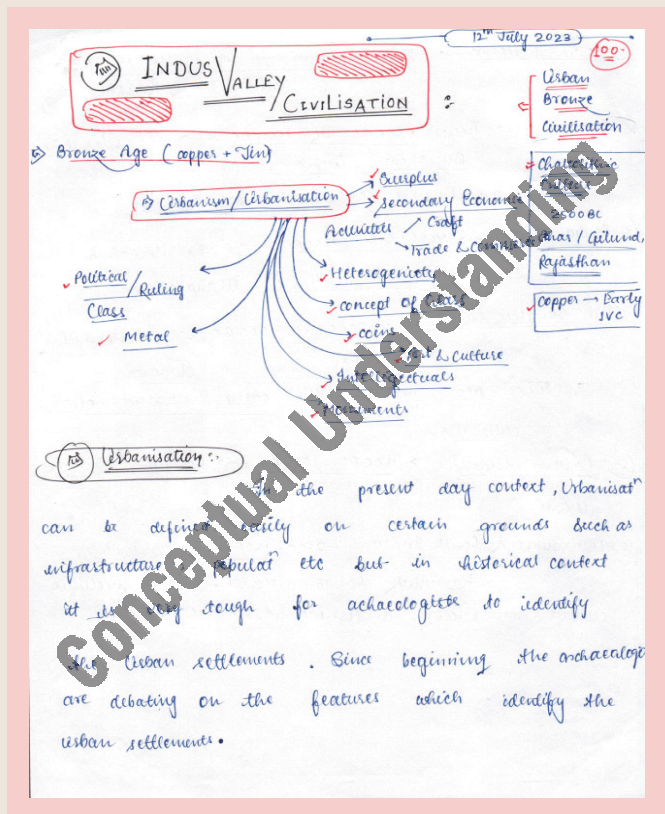 12th July 2023
100
INDUS VALLEY CIVILISATION :-
Urban
Bronze
Civilisation
Bronze Age (copper + Tin)
Urbanism/Urbanisation
Surplus
Secondary Economic
Activities
Craft
Trade & Commerce
Heterogeniety
concept of Class
coins
Art & Culture
Intellegectuals
Monuments
Political/Ruling
Class
Metal
Chalcolithic
Culture
2500 BC
Ahar / Gilund,
Rajasthan
Copper → Early
IVC
Urbanisation :-
In the present day context, Urbanisatn
can be defined easily on certain grounds such as
infrastructure, populatn etc but in historical context
it is very tough for achaeologists to identify
the Urban settlements. Since beginning the archaeologi
are debating on the features which identify the
urban settlements.
Conceptual Understanding